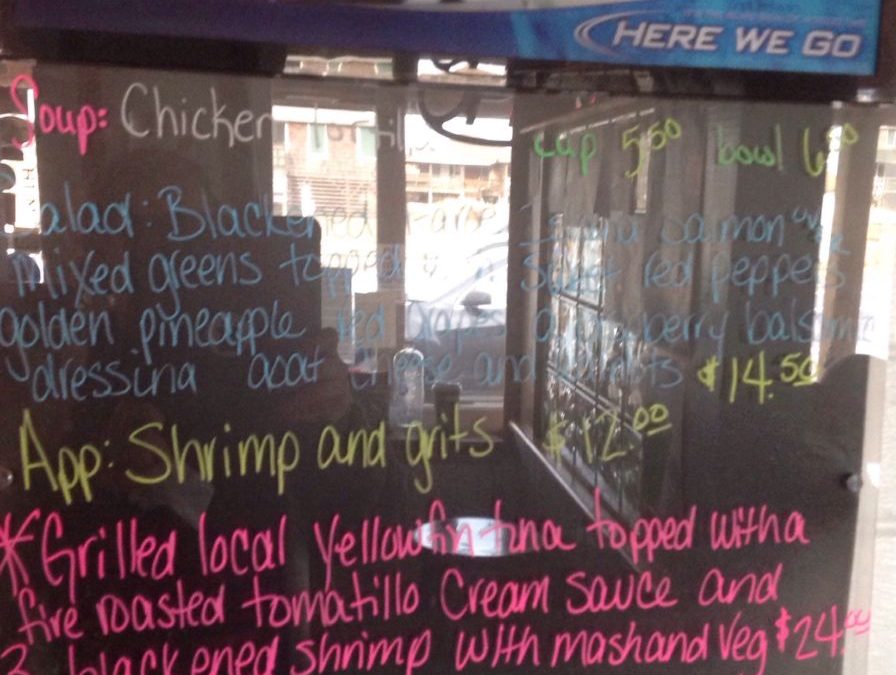 HERE WE GO
Soup: Chicken cup 5.50 bowl 6.50
Salad: Blackened Faroe Island salmon over
mixed greens topped with sweet red peppers
golden pineapple red grapes a strawberry balsamic
dressing goat cheese and $14.50
App: Shrimp and grits $12.00
*Grilled local Yellowfin tuna topped with a
fire roasted tomatillo Cream sauce and
3 blackened shrimp with mash and veg $24.00